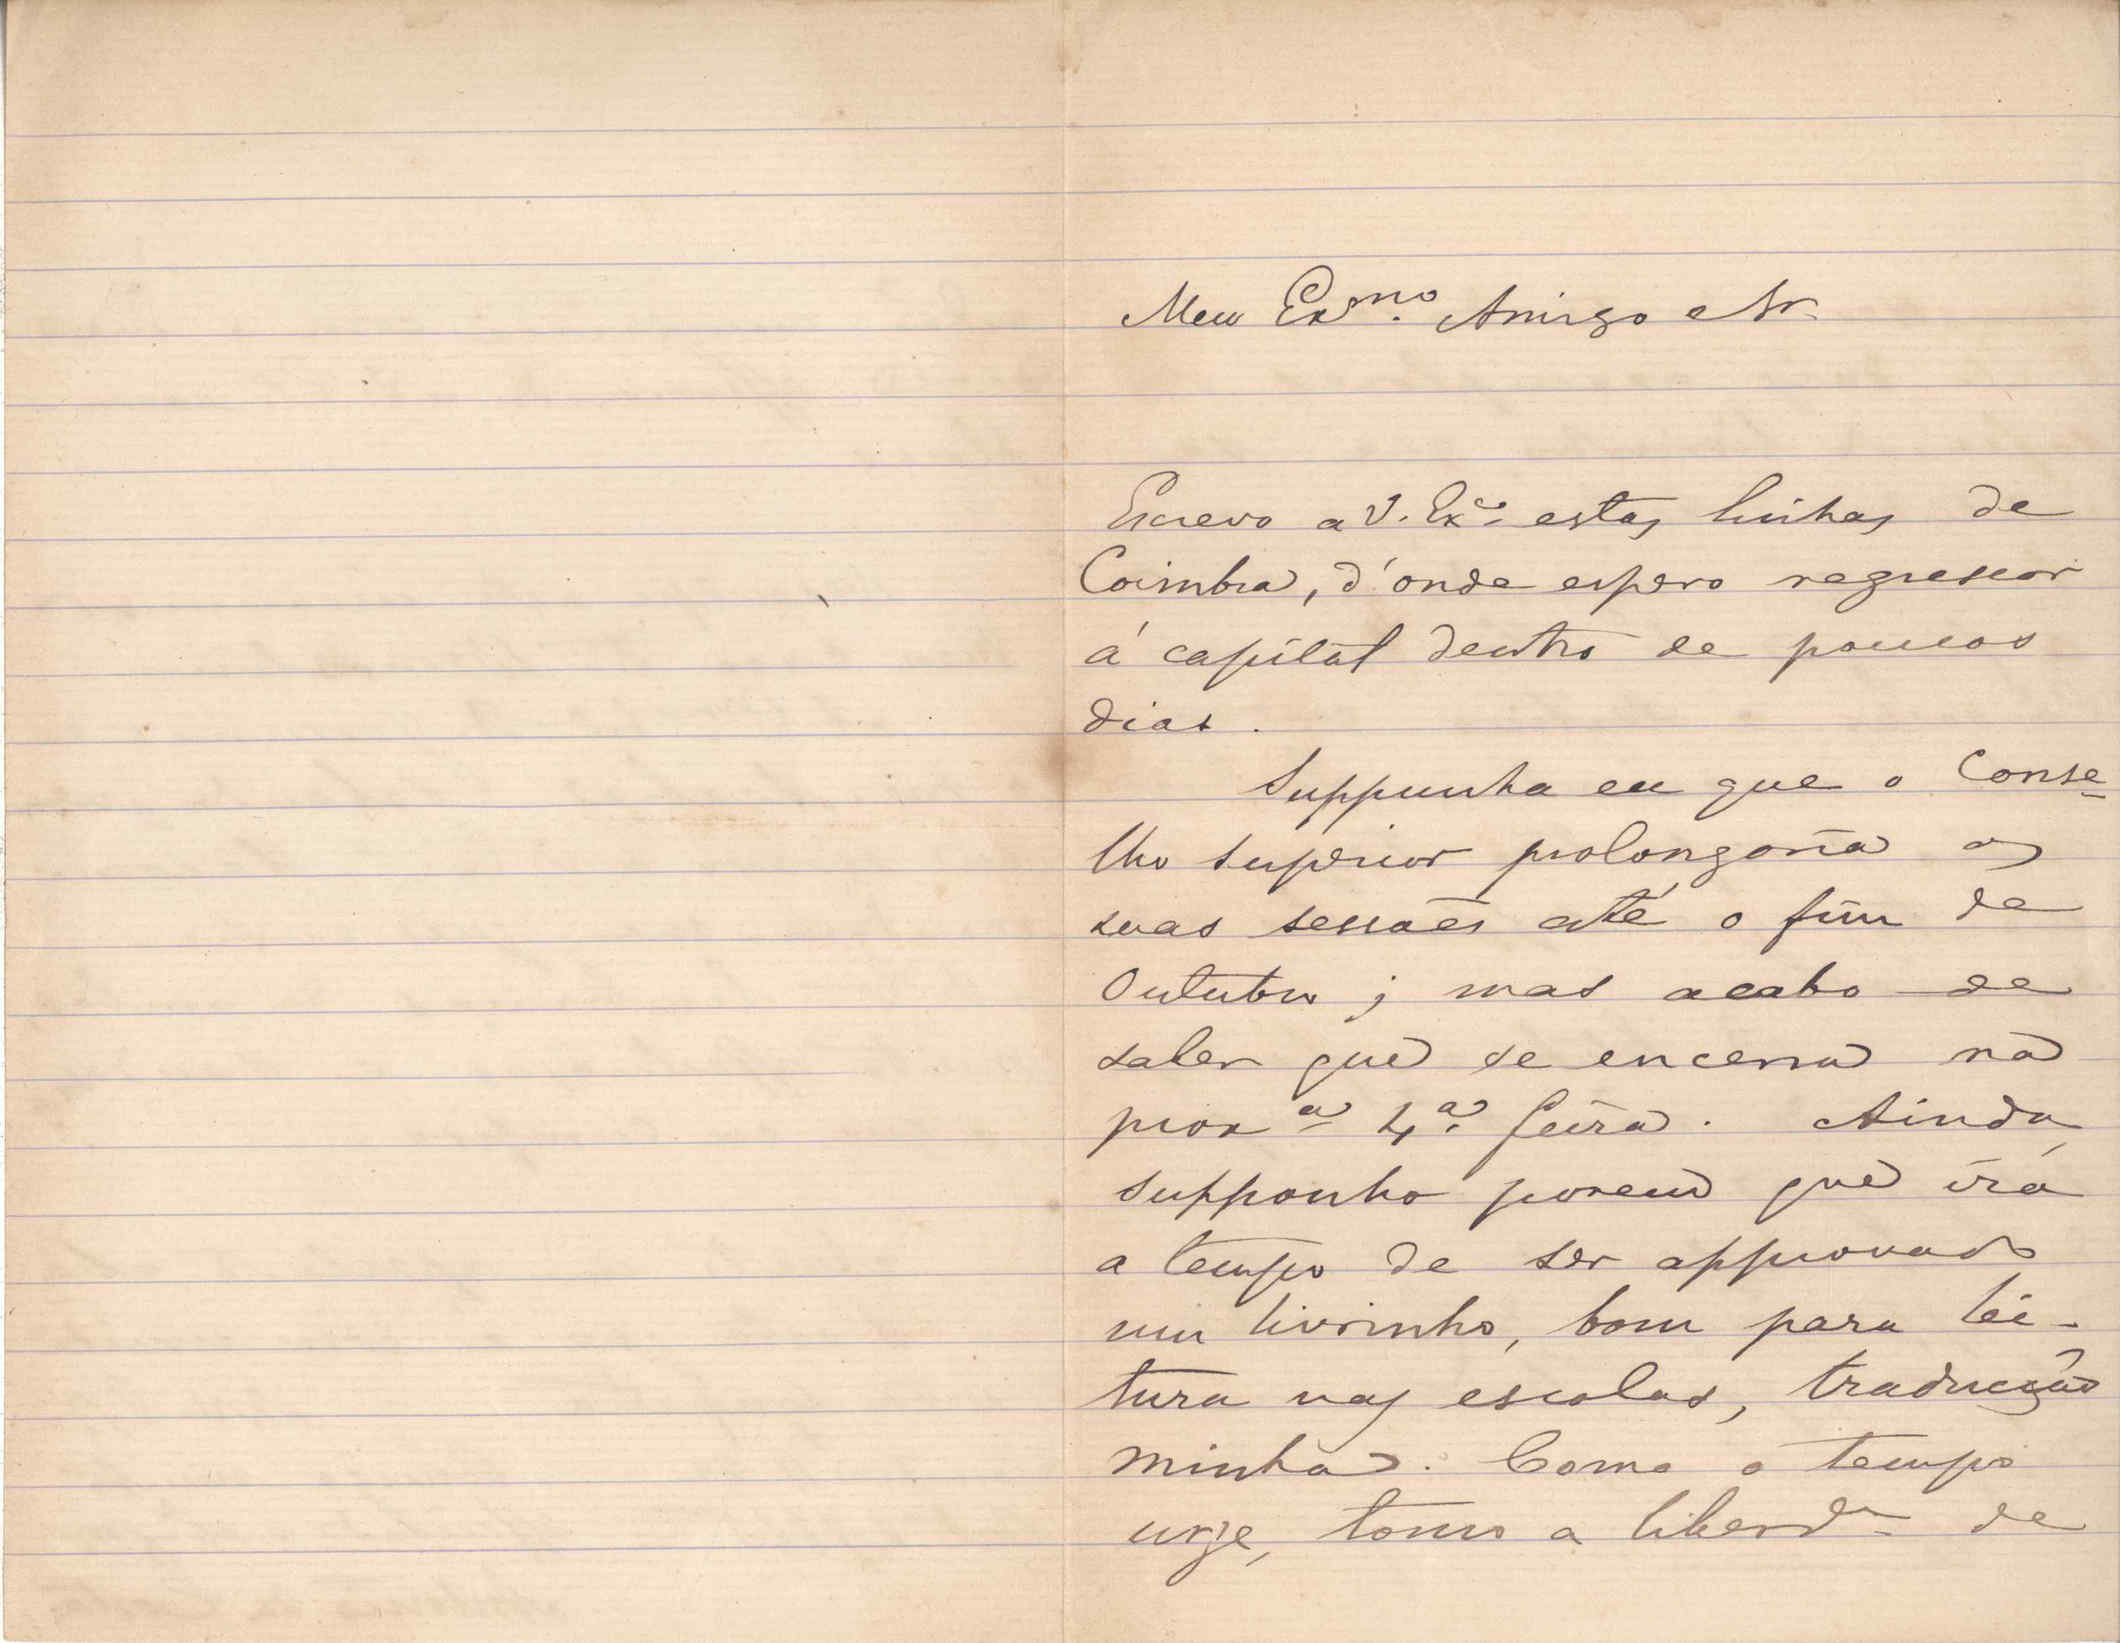 Meu Exmo. Amigo e Sr.
Escrevo a V. Exa. estas linhas de
Coimbra, d'onde espero regressar
á capital dentro de poucos
dias.
Suppunha eu que o Conse-
lho superior prolongaria as
suas sessões até o fim de
Outubro; mas acabo de
saber que se encerra na
proxa 4a. feira. Ainda
supponho porem que irá
a tempo de ser approvado
um livrinho, bom para lei-
tura nas escolas, traducção
minha. Como o tempo
urge, tomo a liberde de